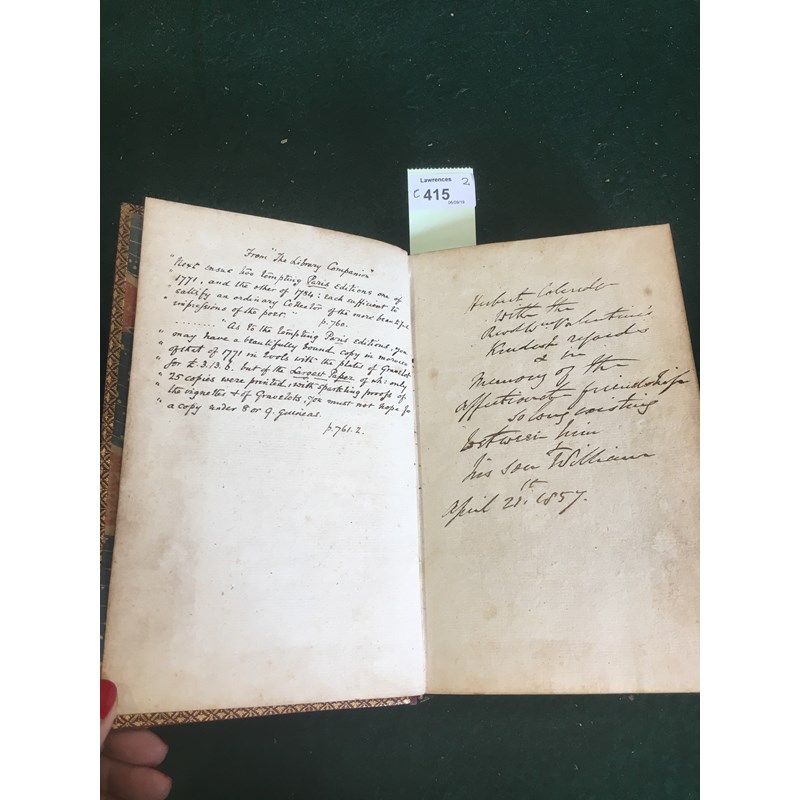 Lawrences
C 415 2
From "The Library Companion"
"Next ensue two tempting Paris editions one of
" 1771, and the other of 1784: each sufficient to
" an ordinary Collector of the more beautiful
" impressions of the poet." p.760.
"........ "As to the tempting Paris editions, you
" may have a beautifully bound copy in morocco
" of that of 1771 in 2 vols with the plates of Gravelot
" for £.3.13.6. but of the Largest Paper of wh: only
" 25 copies were printed, with sparkling proofs of
" the vignettes + of Gravelots, you must not hope for
" a copy under 8 or 9. guineas.
p.761.2.
Herbert Coleridge
With the
Kindest regards
& in
Memory of the
affectionate friendship
so long existing
between him
his son William
April 21st. 1857.